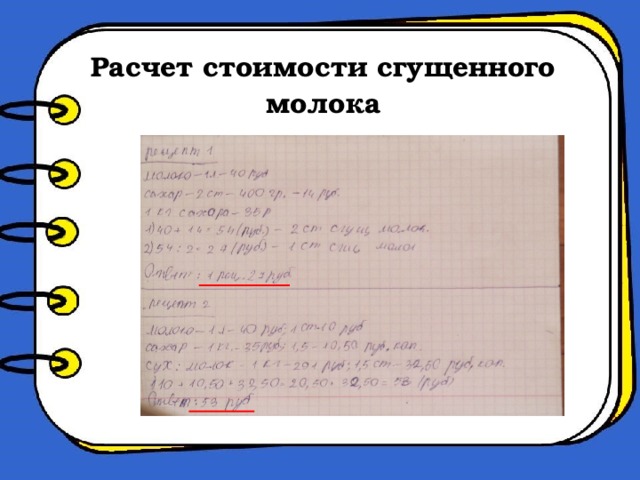 Расчет стоимости сгущенного
молока
рецепт 1
молоко – 1 л – 40 руб
сахар – 2 ст – 400 гр. – 14 руб.
1 кг. сахара – 35 р
1) 40 + 14 = 54 (руб.) – 2 ст сгущ молок.
2) 54 : 2 = 27 (руб) – 1 ст сгщ молок
Ответ: 1 рец. 27 руб
рецепт 2
молоко – 1 л – 40 руб; 1 ст 10 руб
сахар – 1 кг. – 35 руб; 1,5 – 10,50 руб. коп.
сух: молок – 1 кг – руб; 1,5 ст – 32,50 руб, коп.
1) 10 + 10,50 + 32,50 = 20,50 + 32,50 = 53 (руб)
Ответ: 53 руб